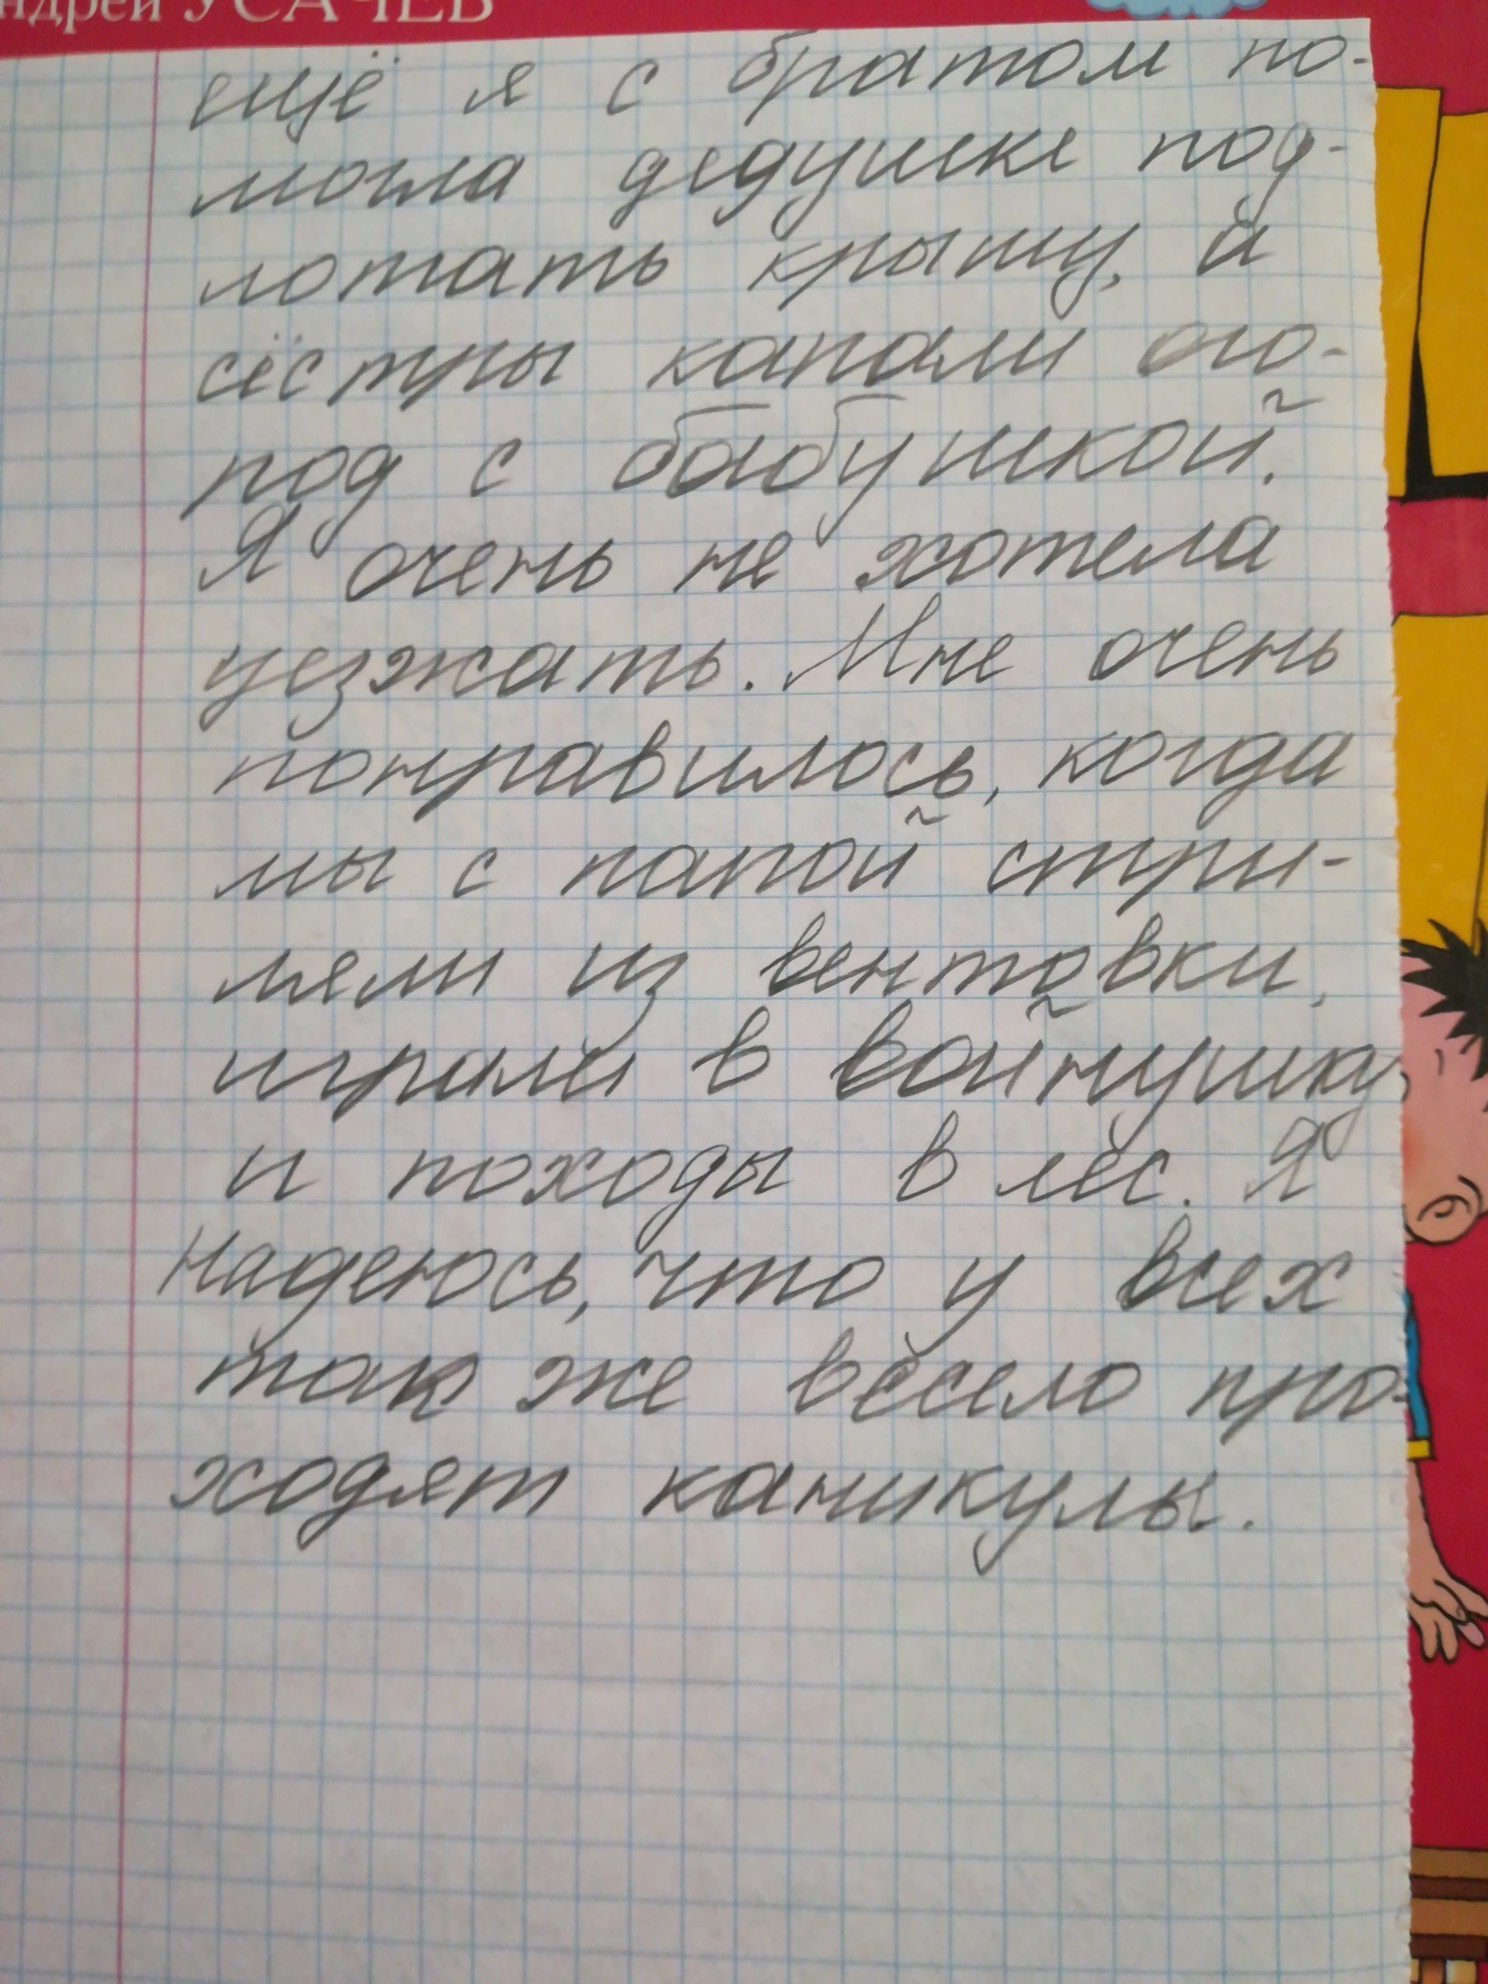 ндрей УСАЧЕВ
ещё я с братом по-
могла дедушке под-
лотать крышу, а
сёстры капали ого-
род с бабушкой.
Я очень не хотела
уезжать. Мне очень
понравилось, когда
мы с папой стри-
ляли из вентовки,
играли в войнушку
и походы в лес. Я
надеюсь, что у всех
так же весело про-
ходят каникулы.